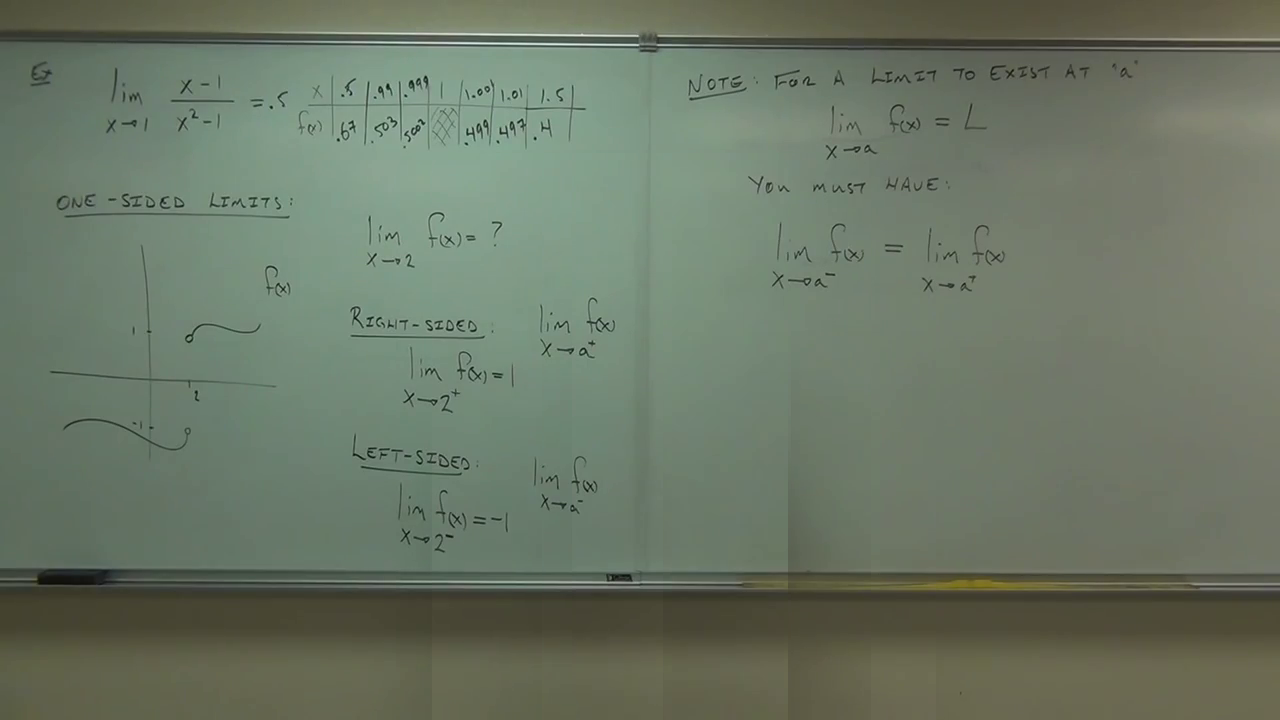 Ex lim x→1 (x-1)/(x²-1) = .5
x | .5 | .99 | .999 | 1 | 1.001 | 1.01 | 1.5
f(x) | .67 | .503 | .5002 | | .499 | .497 | .4
ONE-SIDED LIMITS:
f(x)
1
2
-1
lim x→2 f(x) = ?
RIGHT-SIDED: lim x→a⁺ f(x)
lim x→2⁺ f(x) = 1
LEFT-SIDED: lim x→a⁻ f(x)
lim x→2⁻ f(x) = -1
NOTE: FOR A LIMIT TO EXIST AT "a"
lim x→a f(x) = L
YOU MUST HAVE:
lim x→a⁻ f(x) = lim x→a⁺ f(x)